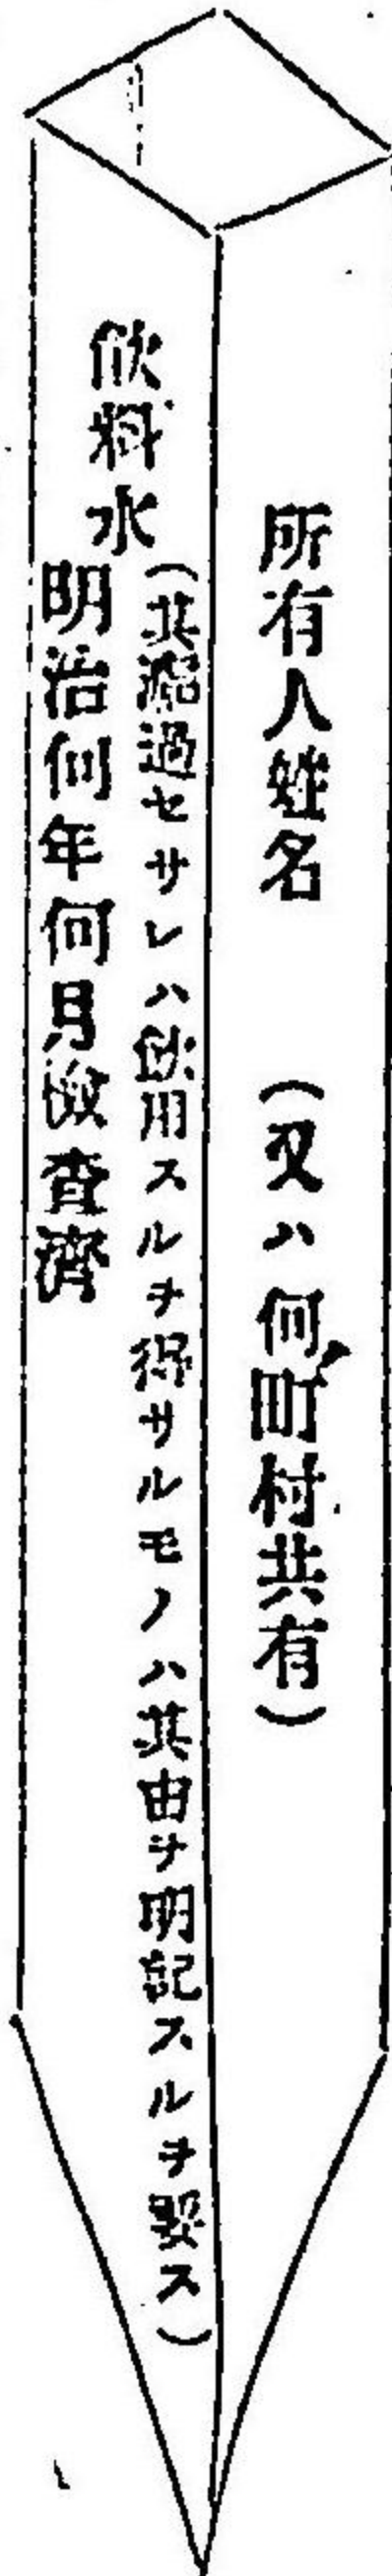 所有人姓名 (又ハ何町村共有)
飲料水(其濾過セサレハ飲用スルヲ得サルモノハ其由ヲ明記スルヲ要ス)
明治何年何月検査濟